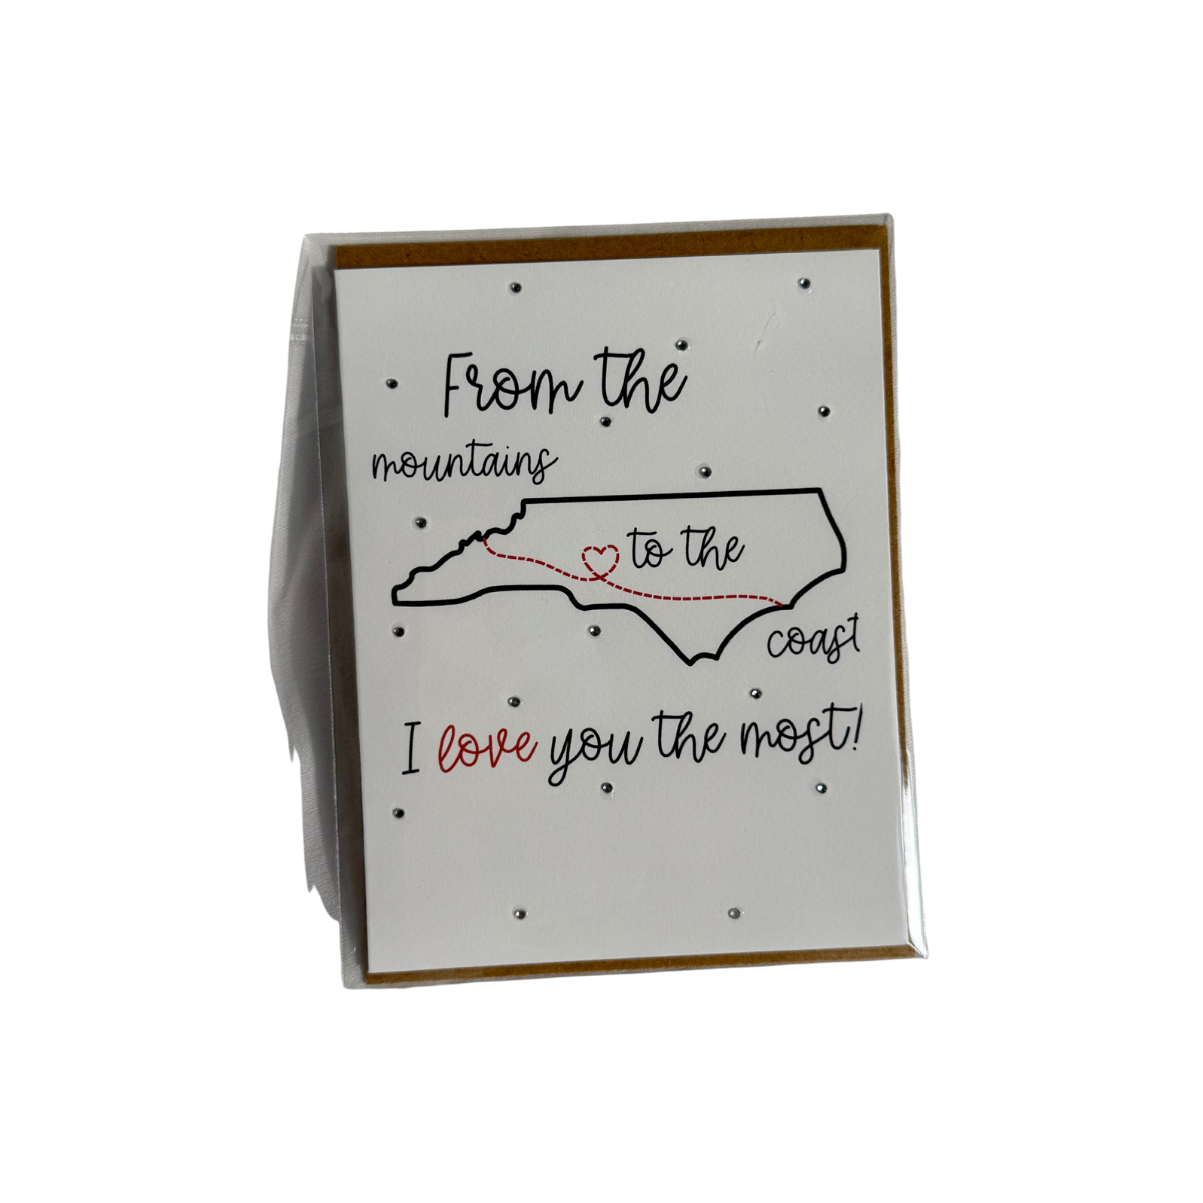 From the
mountains
to the
coast
I love you the most!